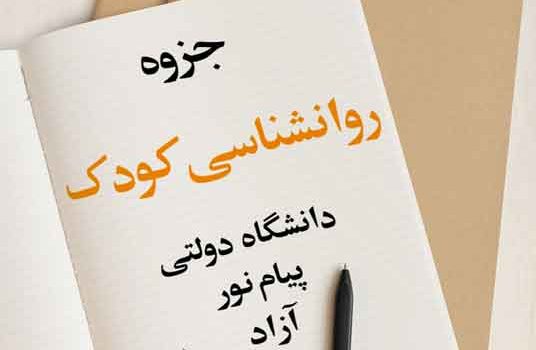 جزوه
روانشناسی کودک
دانشگاه دولتی
پیام نور
آزاد